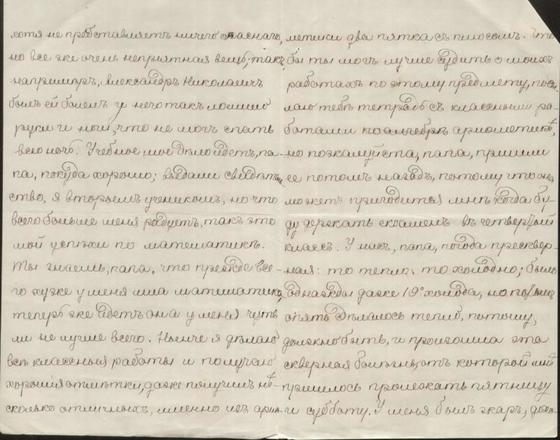 хотя не представляетъ ничего опаснаго,
но все же очень непріятная вещь; такъ
напримѣръ, Александръ Николаевичъ
былъ ей боленъ у него такъ ломило
руки и ноги, что не могъ спать
всю ночь. Учебное мое дѣло идетъ, па-
па, покуда хорошо;
ство, я вторымъ ученикомъ, но что
всего больше меня радуетъ, такъ это
мой успѣхи по математикѣ.
Ты знаешь, папа, что прежде все-
го хуже у меня шла математика,
теперь же идетъ она у меня чуть
ли не лучше всего. Нынче я дѣлаю
всѣ классныя работы и получаю
хорошія отмѣтки, даже получилъ нѣ-
сколько отличныхъ, именно изъ ариѳ-
метики два пятка съ плюсомъ. Что
бы ты могъ лучше судить о моихъ
работахъ по этому предмету, посы-
лаю тебѣ тетрадь съ классными ра-
ботами по алгебрѣ ариѳметикѣ,
но пожалуйста, папа, пришли
ее потомъ назадъ, потому что она
можетъ пригодиться мнѣ, когда бу-
ду держать экзаменъ въ четвертый
классъ. У насъ, папа, погода пресквер-
ная: то тепло, то холодно; было
однажды даже 19° холода, но потомъ
опять сдѣлалось тепло, потому,
должно быть, и произошла эта
скверная болѣзнь, отъ которой мнѣ
пришлось пролежать пятницу
и субботу. У меня былъ жаръ,